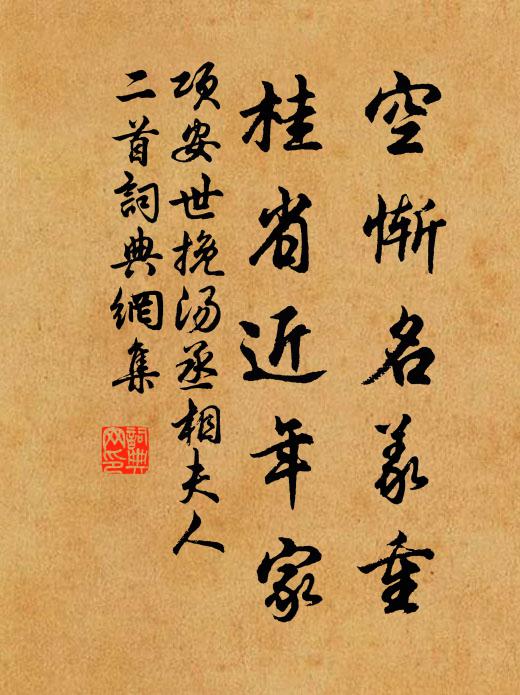 空惭名義重
桂省近年家
项安世挽汤丞相夫人
二首詞典網集
詞典
网印